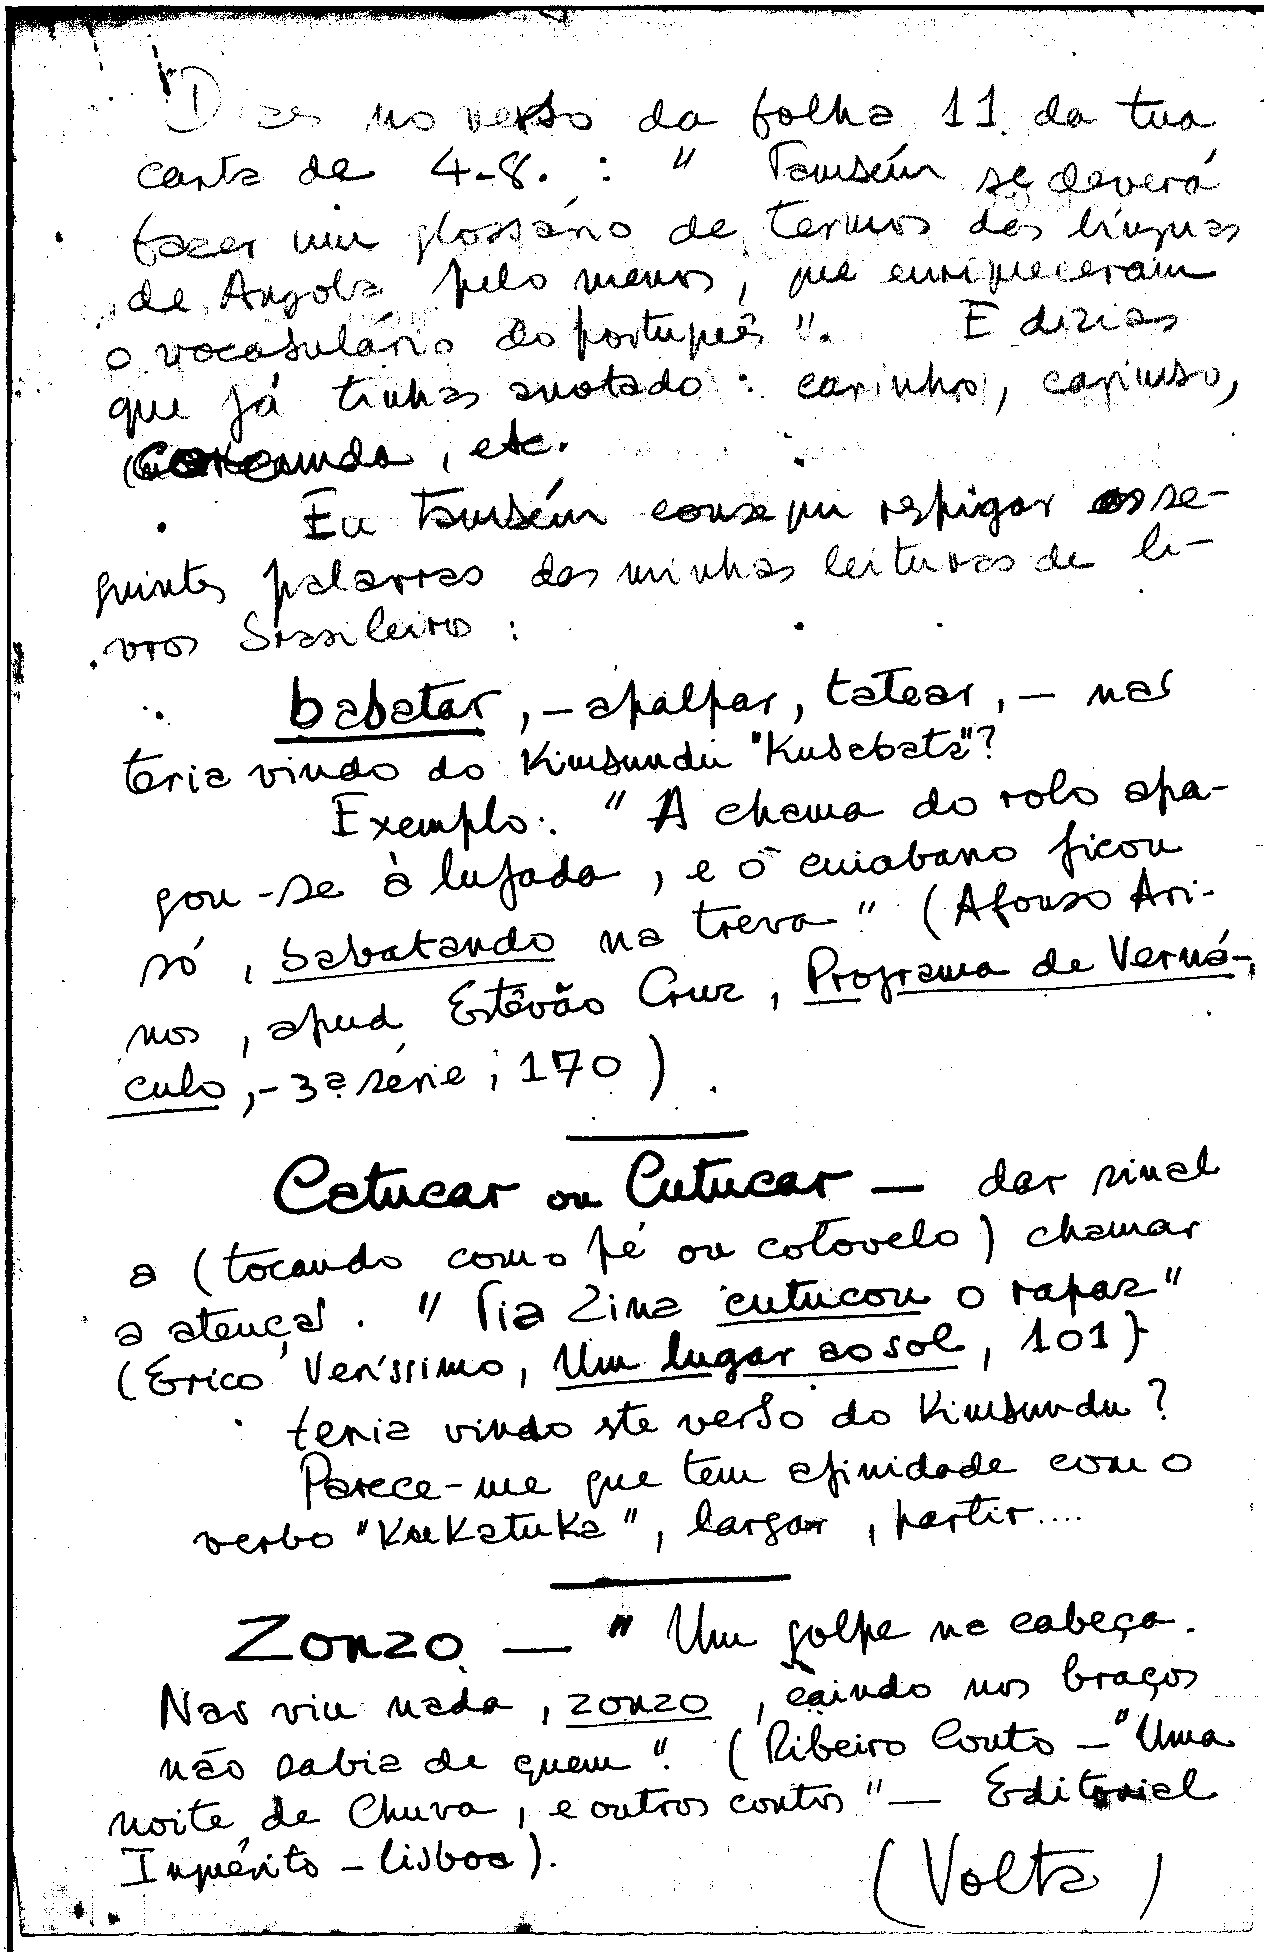 Dizes no verso da folha 11 da tua
carta de 4-8. : " Também se deverá
fazer um glossário de termos das línguas
de Angola pelo menos, que enriqueceram
o vocabulário do português ". E dizias
que já tinhas anotado : carinho, carimbo,
, etc.
Eu também consegui respigar os se-
guintes palavras das minhas leituras de li-
vros brasileiro :
babatar, - apalpar, tatear, - nas
teria vindo do Kimbundu "Kubabata"?
Exemplo: " A chama do rolo apa-
gou-se à lufada, e o cuiabano ficou
só, babatando na treva " (Afonso Ari-
nos, apud Estêvão Cruz, Programa de Verná-
culo, - 3ª série, 170)
Catucar ou Cutucar - dar sinal
a (tocando com o pé ou cotovelo) chamar
a atençã. " Tia Zina cutucou o rapaz"
(Erico Veríssimo, Um lugar ao sol, 101)
teria vindo ste verbo do Kimbundu ?
Parece-me que tem afinidade com o
verbo "Kukatuka", largar, partir....
Zonzo - " Um golpe na cabeça.
Nas viu nada, zonzo, caindo nos braços
não sabia de quem ". (Ribeiro Couto - "Uma
noite de Chuva, e outros contos" - Editorial
Inquérito - Lisboa).
(Volta)